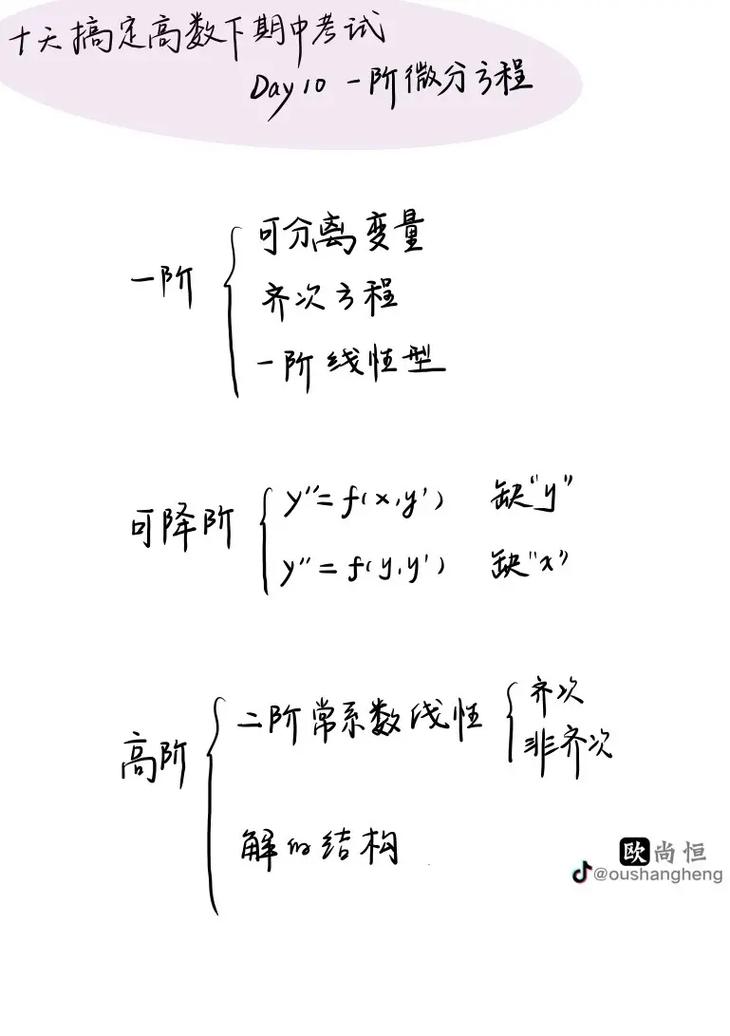 十天搞定高数下期中考试
Day 10 一阶微分方程
一阶
可分离变量
齐次方程
一阶线性型
可降阶
y''=f(x,y') 缺"y"
y''=f(y,y') 缺"x"
高阶
二阶常系数线性
齐次
非齐次
解的结构
欧尚恒
@oushangheng